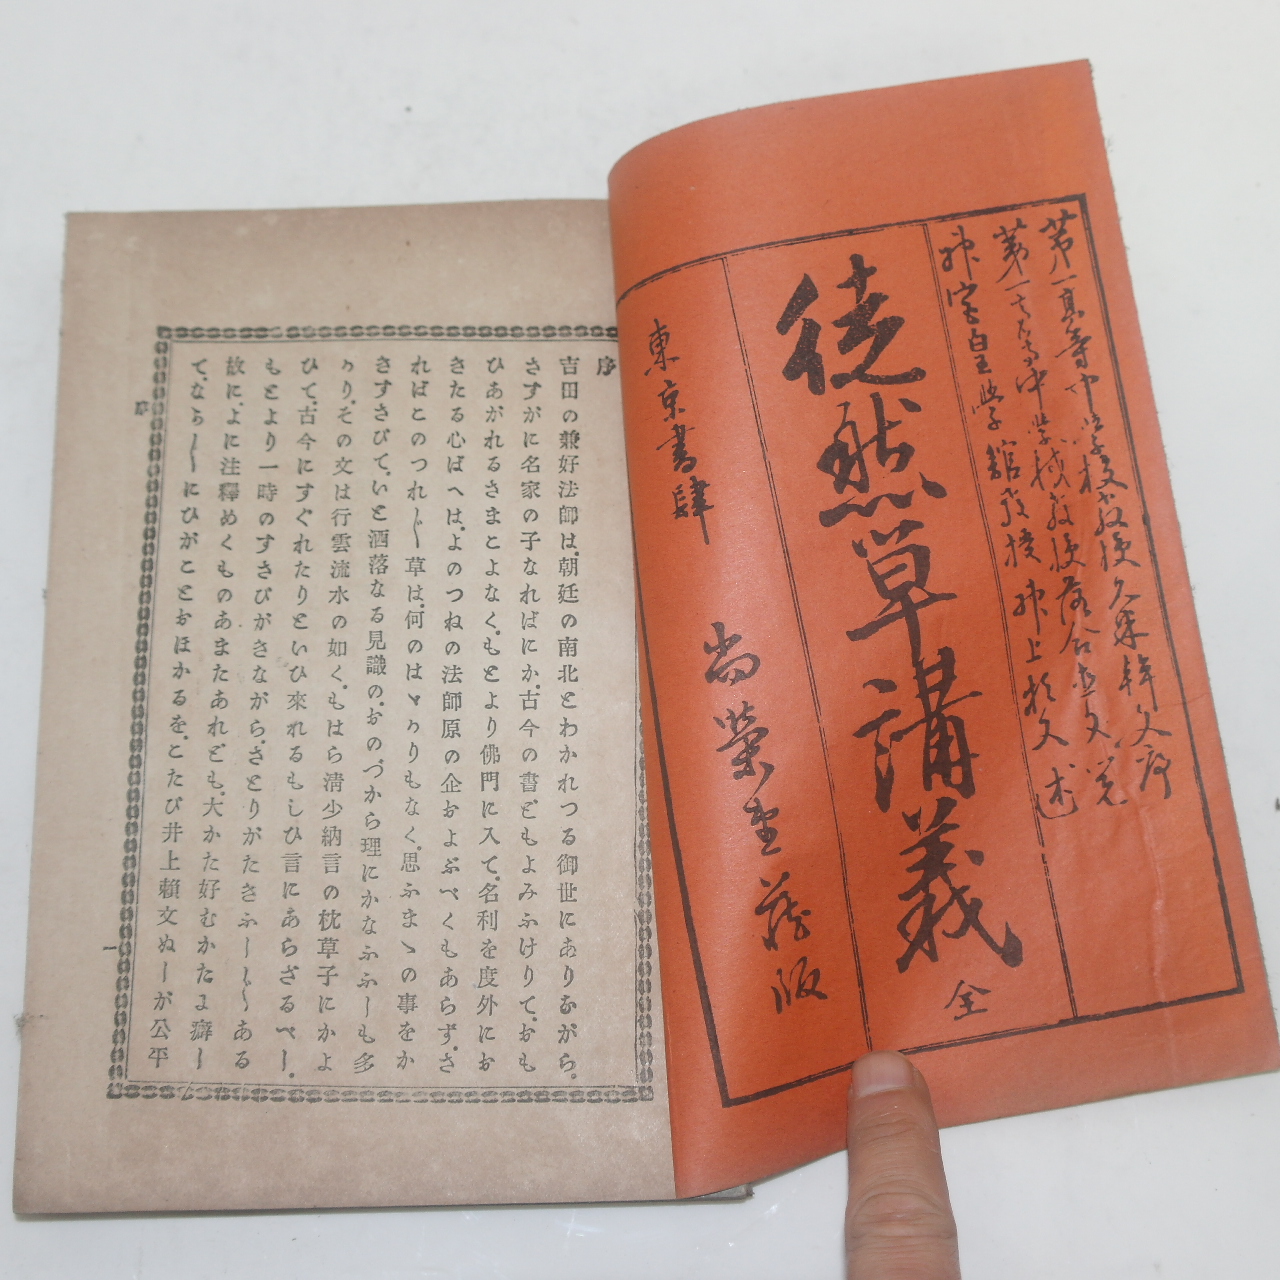 第一高等中学校教授久米幹文序
第一高等中学校教授落合直文閲
神宮皇学館教授井上頼文述
徒然草講義 全
東京書肆 尚榮堂藏版
序
吉田の兼好法師は、朝廷の南北とわかれつる御世にありながら、
さすがに名家の子なればにか、古今の書どもよみふけりて、おも
ひあがれるさまこよなく、もとより佛門に入て、名利を度外にお
きたる心ばへは、よのつねの法師原の企およぶべくもあらず、さ
ればこのつれ〴〵草は、何のはゞかりもなく、思ふまゝの事をか
きすさびて、いと洒落なる見識の、おのづから理にかなふふしも多
かり、その文は行雲流水の如く、もはら淸少納言の枕草子にかよ
ひて、古今にすぐれたりといひ來れるもしひ言にあらざるべし、
もとより一時のすさびがきながら、さとりがたきふし〴〵ある
故に、よに注釋めくものあまたあれども、大かた好むかたよ癖し
て、なら〳〵にひがことおほかるを、こたび井上賴文ぬしが公平
序
一